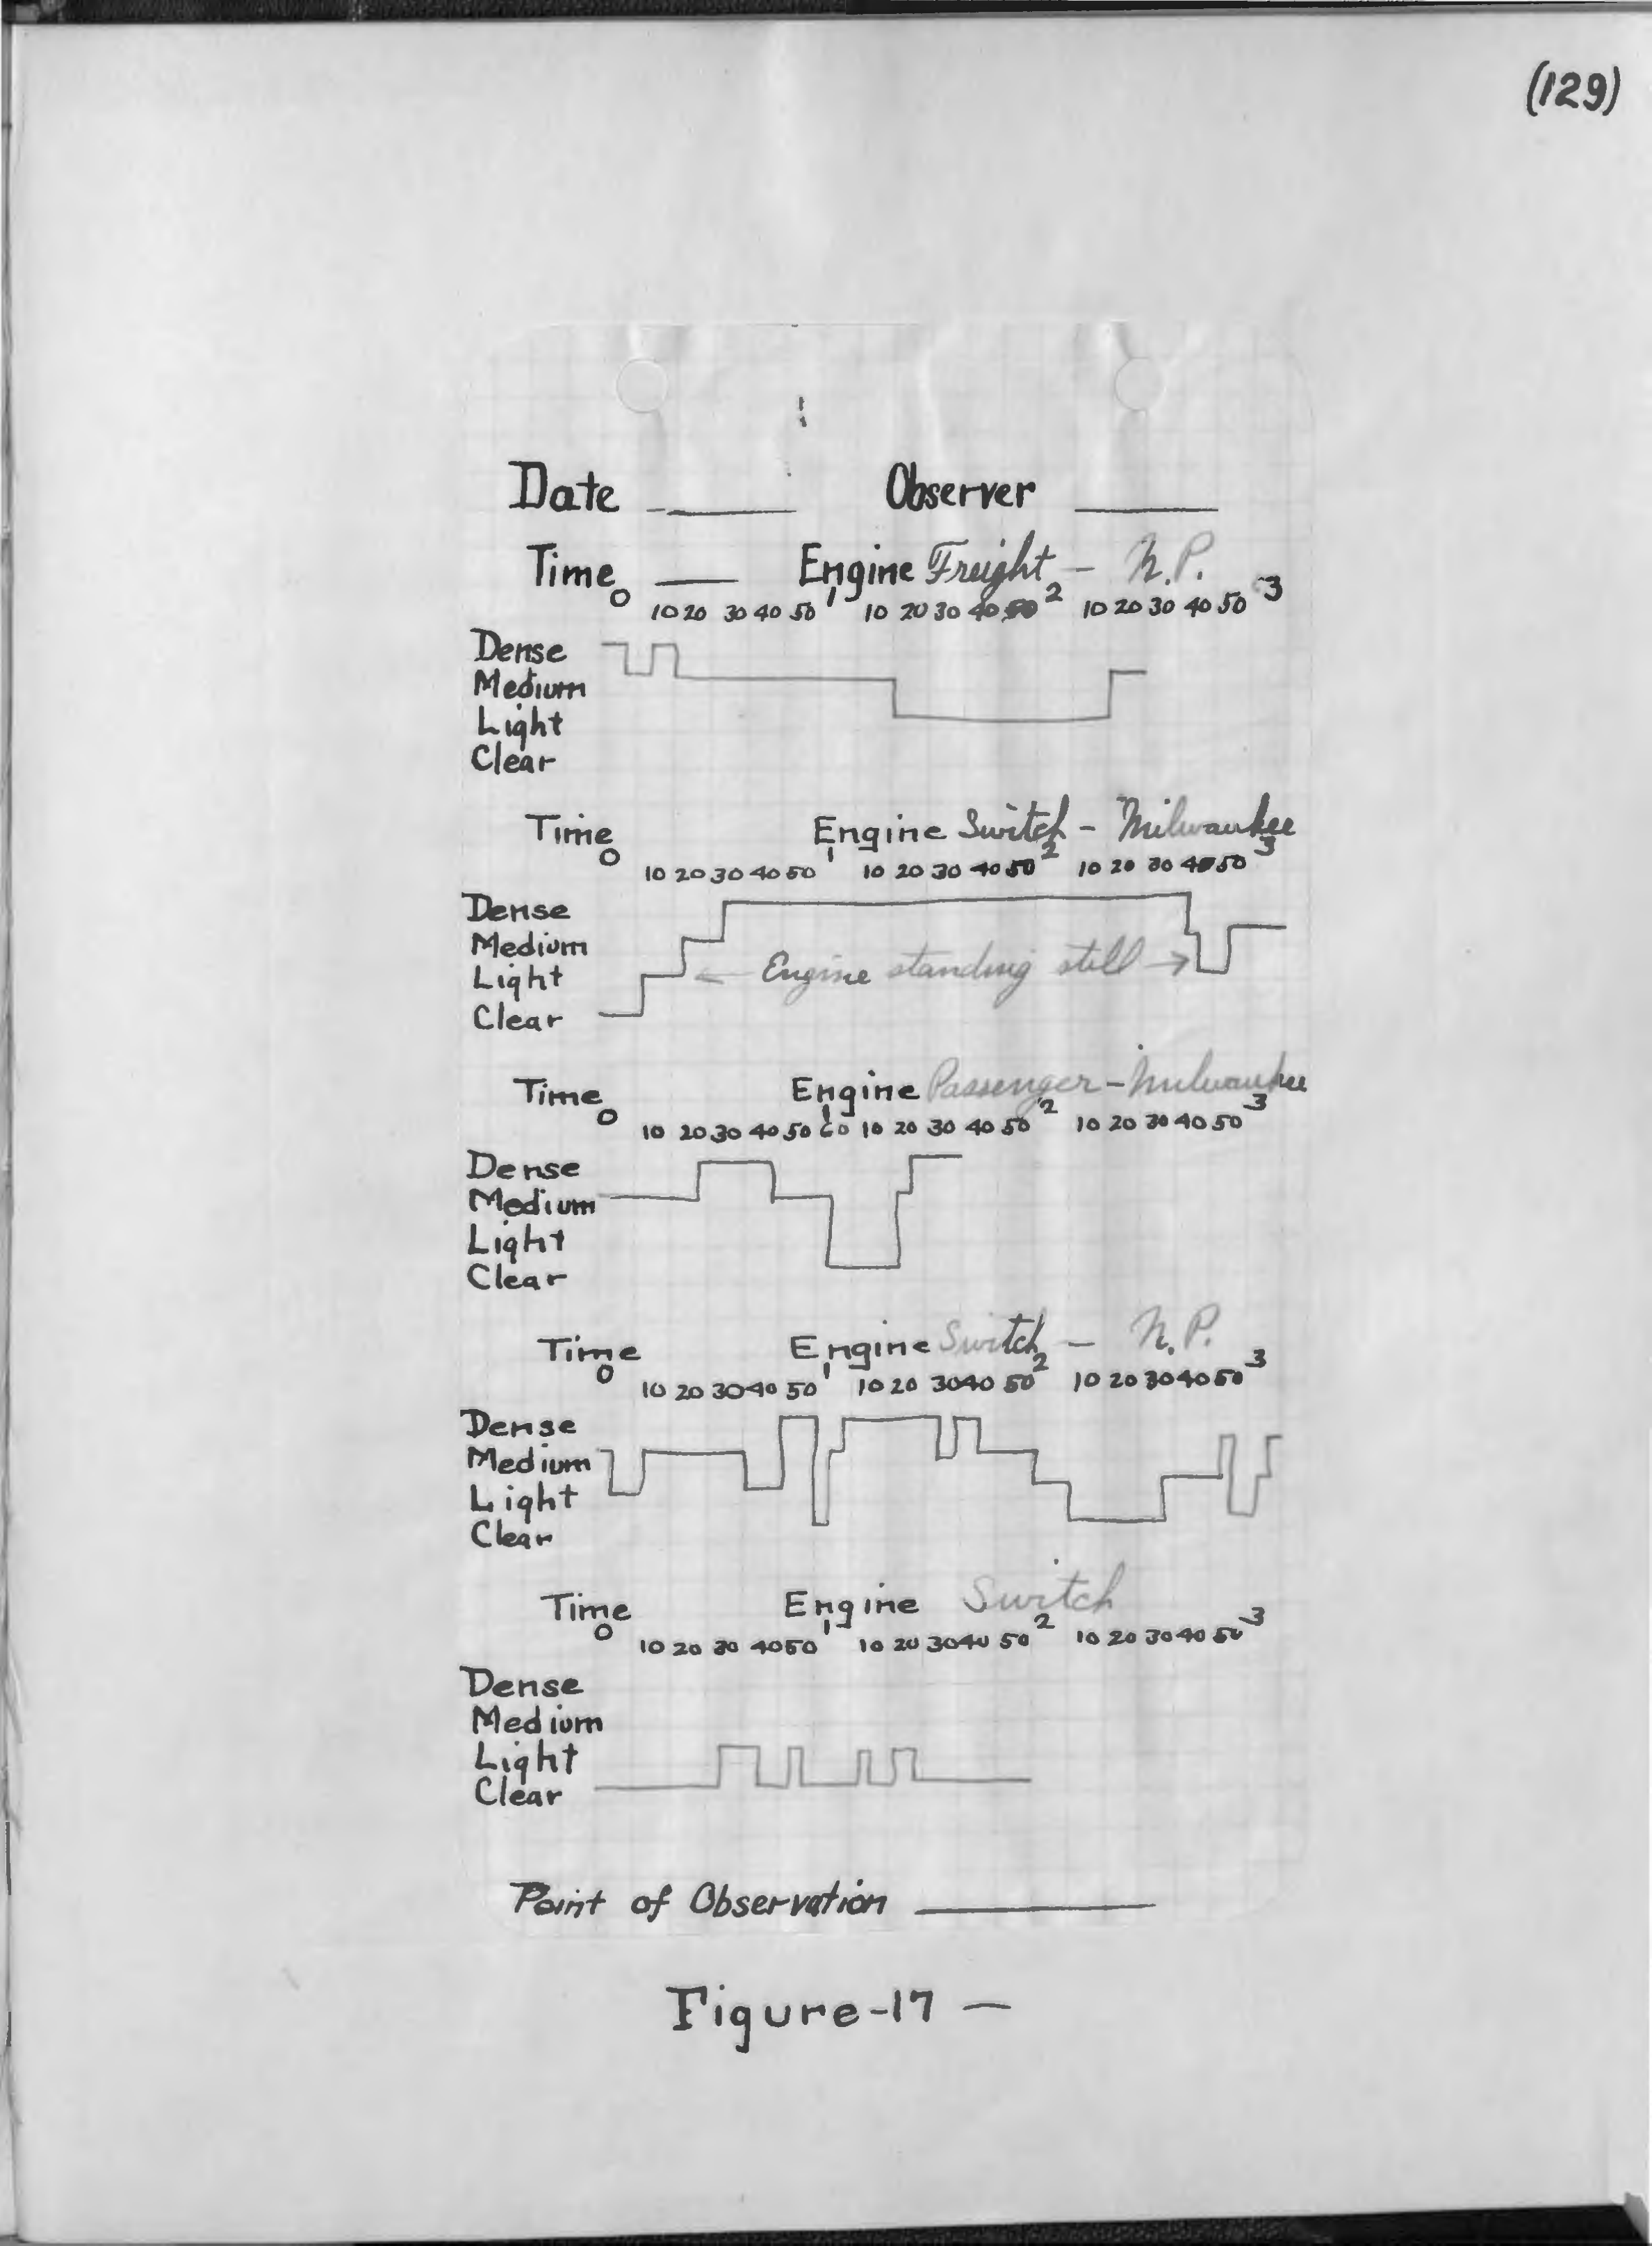 (129)
Date ______ Observer ______
Time ____ Engine Freight - N.P.
0 10 20 30 40 50 1 10 20 30 40 50 2 10 20 30 40 50 3
Dense
Medium
Light
Clear
Time Engine Switch - Milwaukee
0 10 20 30 40 50 1 10 20 30 40 50 2 10 20 30 40 50 3
Dense
Medium
Light
Clear
← Engine standing still →
Time Engine Passenger - Milwaukee
0 10 20 30 40 50 60 1 10 20 30 40 50 2 10 20 30 40 50 3
Dense
Medium
Light
Clear
Time Engine Switch - N.P.
0 10 20 30 40 50 1 10 20 30 40 50 2 10 20 30 40 50 3
Dense
Medium
Light
Clear
Time Engine Switch
0 10 20 30 40 50 1 10 20 30 40 50 2 10 20 30 40 50 3
Dense
Medium
Light
Clear
Point of Observation ________
Figure-17 —